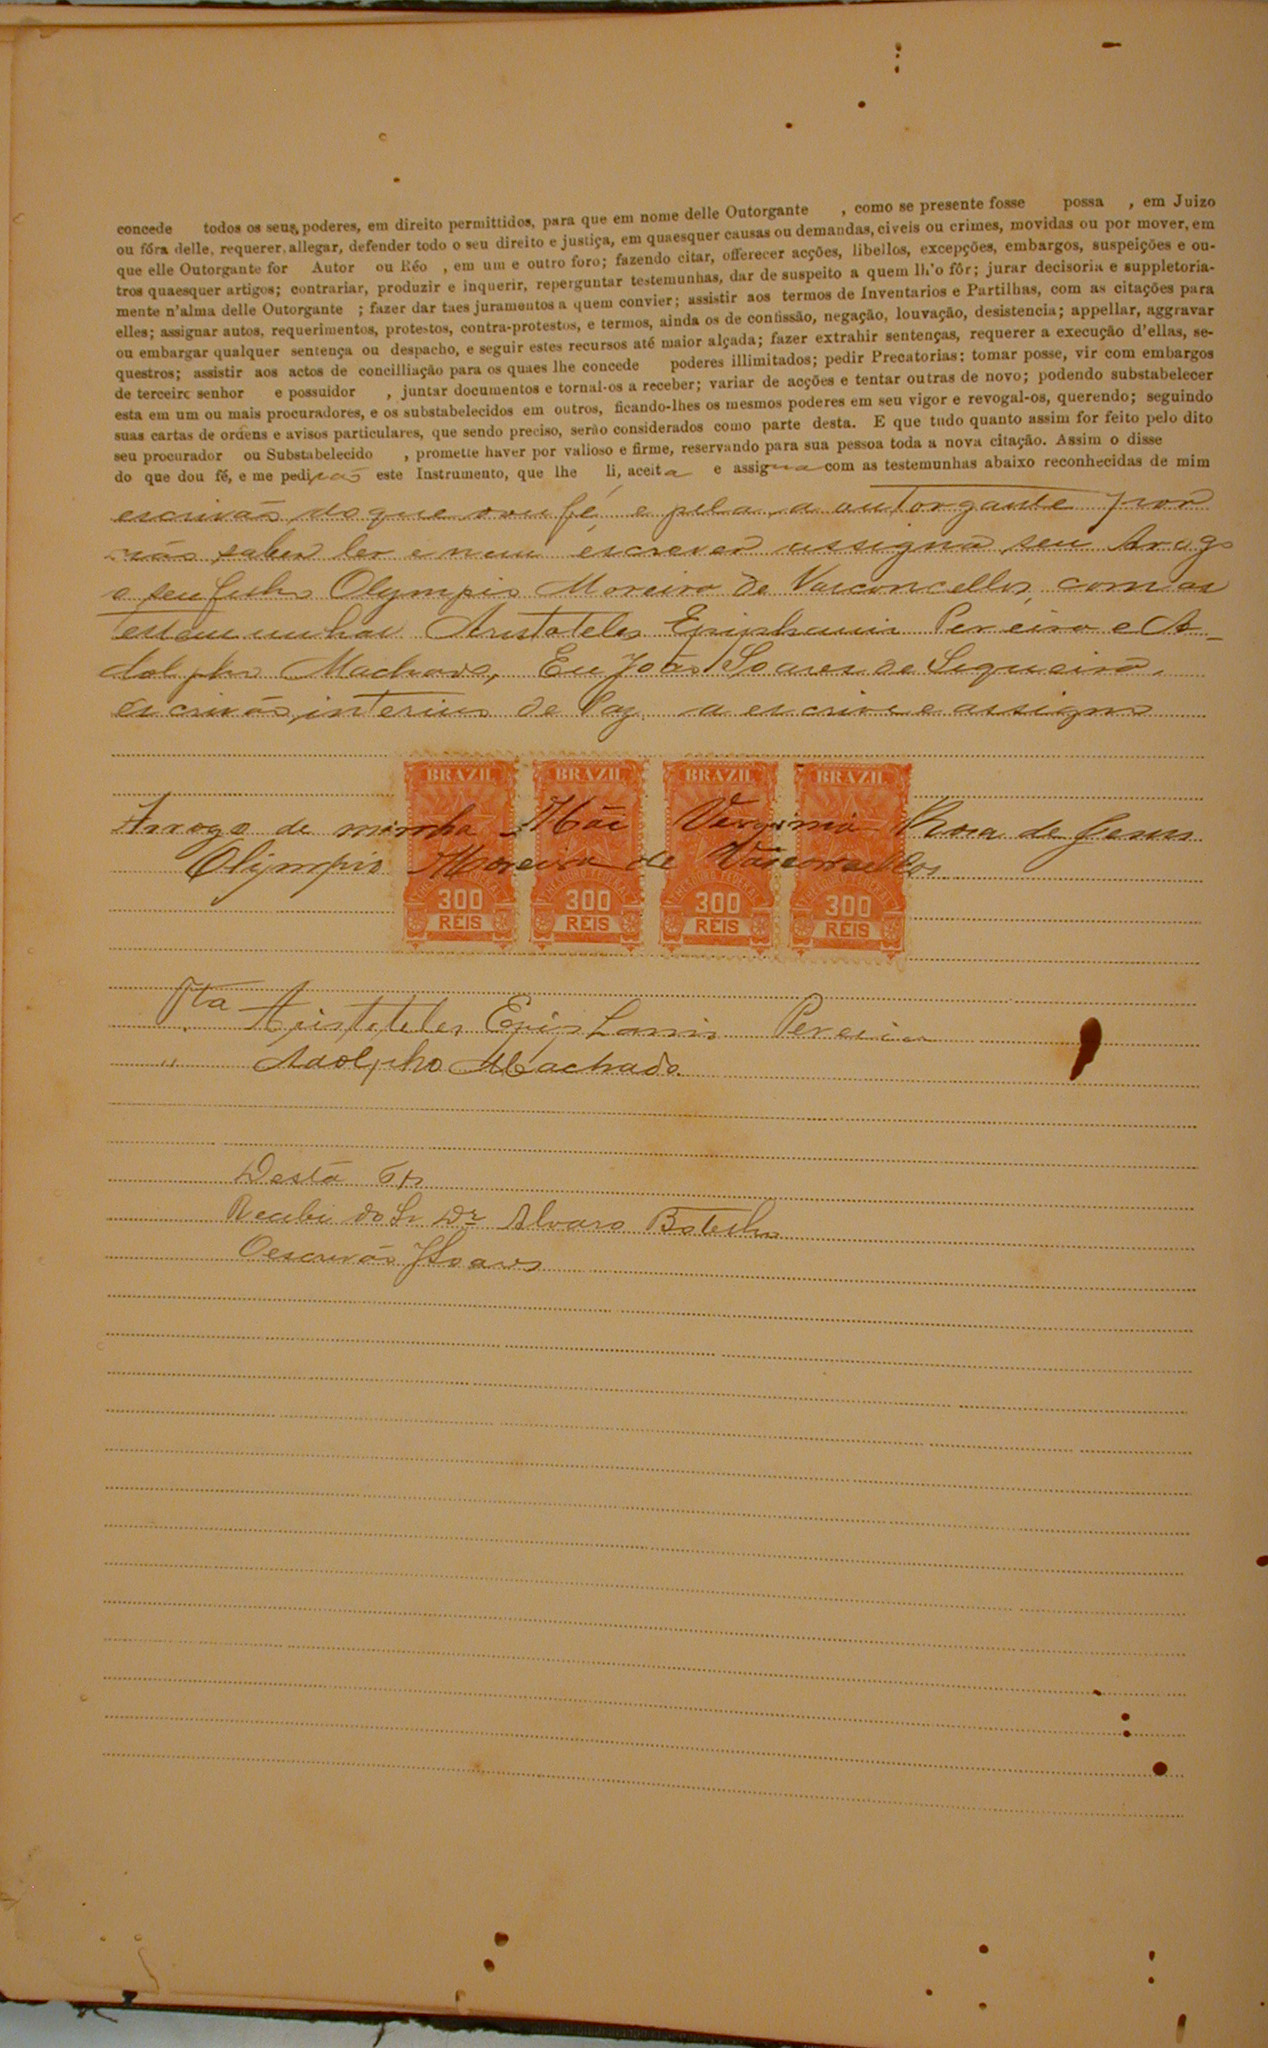 concede todos os seus poderes, em direito permittidos, para que em nome delle Outorgante , como se presente fosse possa , em Juizo
ou fóra delle, requerer, allegar, defender todo o seu direito e justiça, em quaesquer causas ou demandas, civeis ou crimes, movidas ou por mover, em
que elle Outorgante for Autor ou Réo , em um e outro foro; fazendo citar, offerecer acções, libellos, excepções, embargos, suspeições e ou-
tros quaesquer artigos; contrariar, produzir e inquerir, reperguntar testemunhas, dar de suspeito a quem lh'o fôr; jurar decisoria e suppletoria-
mente n'alma delle Outorgante ; fazer dar taes juramentos a quem convier; assistir aos termos de Inventarios e Partilhas, com as citações para
elles; assignar autos, requerimentos, protestos, contra-protestos, e termos, ainda os de confissão, negação, louvação, desistencia; appellar, aggravar
ou embargar qualquer sentença ou despacho, e seguir estes recursos até maior alçada; fazer extrahir sentenças, requerer a execução d'ellas, se-
questros; assistir aos actos de concilliação para os quaes lhe concede poderes illimitados; pedir Precatorias; tomar posse, vir com embargos
de terceiro senhor e possuidor , juntar documentos e tornal-os a receber; variar de acções e tentar outras de novo; podendo substabelecer
esta em um ou mais procuradores, e os substabelecidos em outros, ficando-lhes os mesmos poderes em seu vigor e revogal-os, querendo; seguindo
suas cartas de ordens e avisos particulares, que sendo preciso, serão considerados como parte desta. E que tudo quanto assim for feito pelo dito
seu procurador ou Substabelecido , promette haver por valioso e firme, reservando para sua pessoa toda a nova citação. Assim o disse
do que dou fé, e me pedi este Instrumento, que lhe li, aceita e assigna com as testemunhas abaixo reconhecidas de mim
escrivão do que dou fé e pela a outorgante por
não saber ler e nem escrever assigna seu Arogo
o seu filho Olympio Moreira de Vasconcellos, com as
testemunhas Aristoteles Epiphanio Pereira e A-
dolpho Machado, Eu João Soares de Siqueira,
escrivão interino de Paz a escrivi e assigno
BRAZIL BRAZIL BRAZIL BRAZIL
Arrogo de minha Mãi Verginia Rosa de Jesus
Olimpio Moreira de Vasconcellos
THESOURO FEDERAL THESOURO FEDERAL THESOURO FEDERAL THESOURO FEDERAL
300 300 300 300
REIS REIS REIS REIS
Tta Aristoteles Epiphanio Pereira
" Adolpho Machado
Desta
Recebi do Sr Dr Alvaro Botelho
O escrivão JSoares